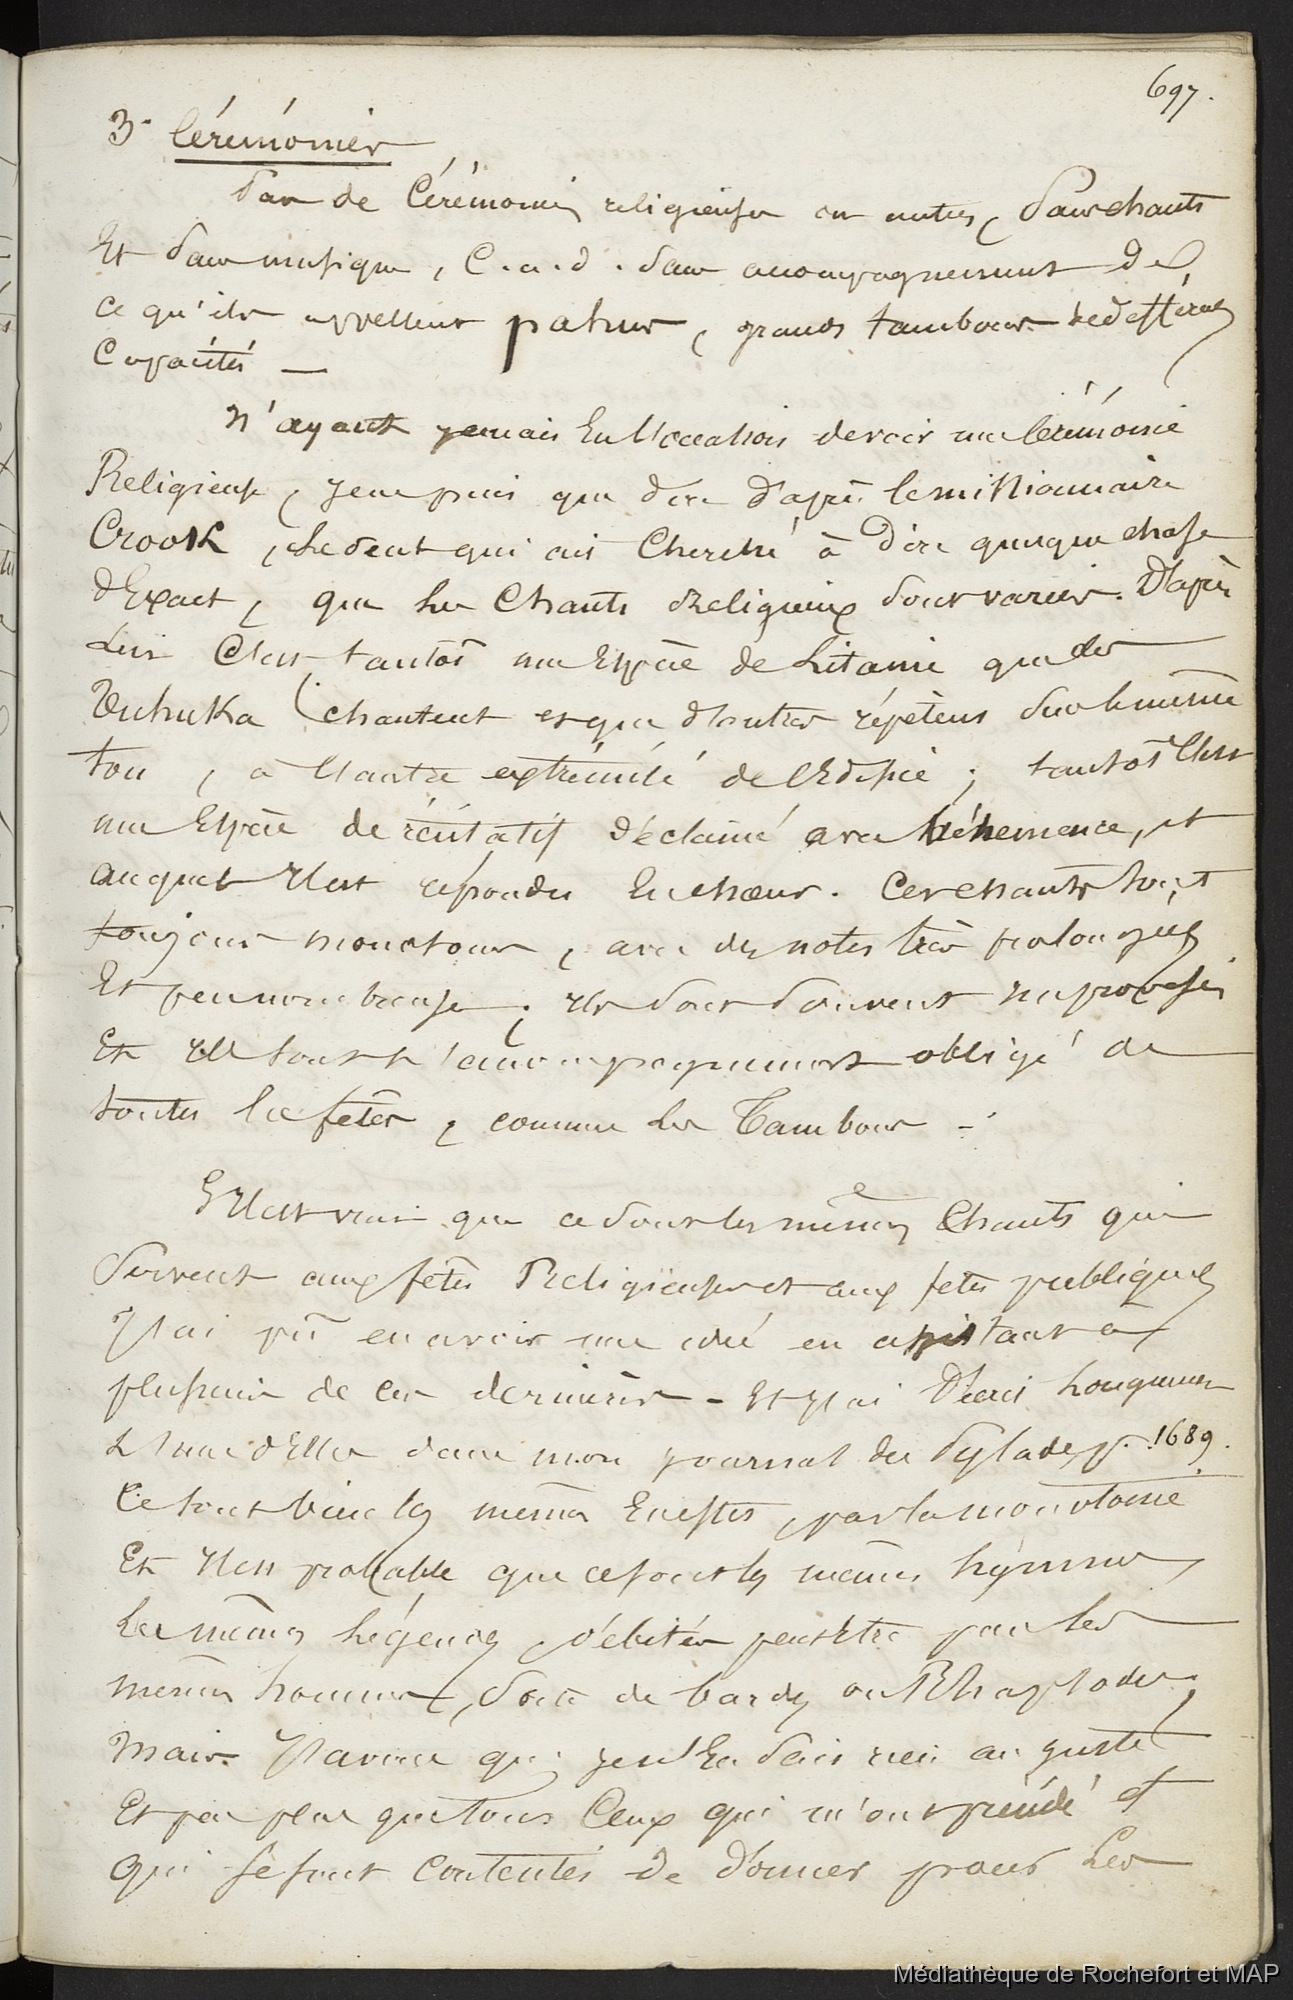 697.
3° Cérémonies
Pas de Cérémonies religieuses ou autres, sans chants
Et sans musique, C.a.d. sans accompagnement de
ce qu'ils appellent pahus, grands tambours de différentes
Capacités —
N'ayant jamais Eu l'occasion de voir une Cérémonie
Religieuse, je ne puis que dire d'après le missionnaire
Crook, le seul qui ait Cherché à dire quelque chose
d'Exact, que les Chants Religieux sont variés. D'après
lui C'est tantôt une Espèce de Litanie que des
Tuhuka chantent et que d'autres répètent sur le même
ton, à l'autre extrémité de l'Edifice; tantôt C'est
une Espèce de récitatif déclamé avec véhémence, et
auquel Il est répondu En chœur. Ces chants sont
toujours monotones, avec des notes très prolongées
Et peu nombreuses; Ils sont souvent improvisés
Et Ils sont l'accompagnement obligé de
toutes les fêtes, comme les Tambours —
S'Il est vrai que ce sont les mêmes Chants qui
Servent aux fêtes Religieuses et aux fêtes publiques
J'ai pû en avoir une idée en assistant à
plusieurs de ces dernières - Et j'ai décri longuement
L'une d'Elles dans mon journal du Pylade, p. 1689.
Ce sont bien les mêmes En effet, par la monotonie
Et Il est probable que ce sont les mêmes hymnes,
Les mêmes Légendes, débitées peut être par les
mêmes hommes, sorte de bardes ou Rhapsodes,
Mais J'avoue que je n'En sais rien au juste
Et pas plus que tous Ceux qui m'ont précédé et
qui se sont Contentés de donner pour les
Médiathèque de Rochefort et MAP